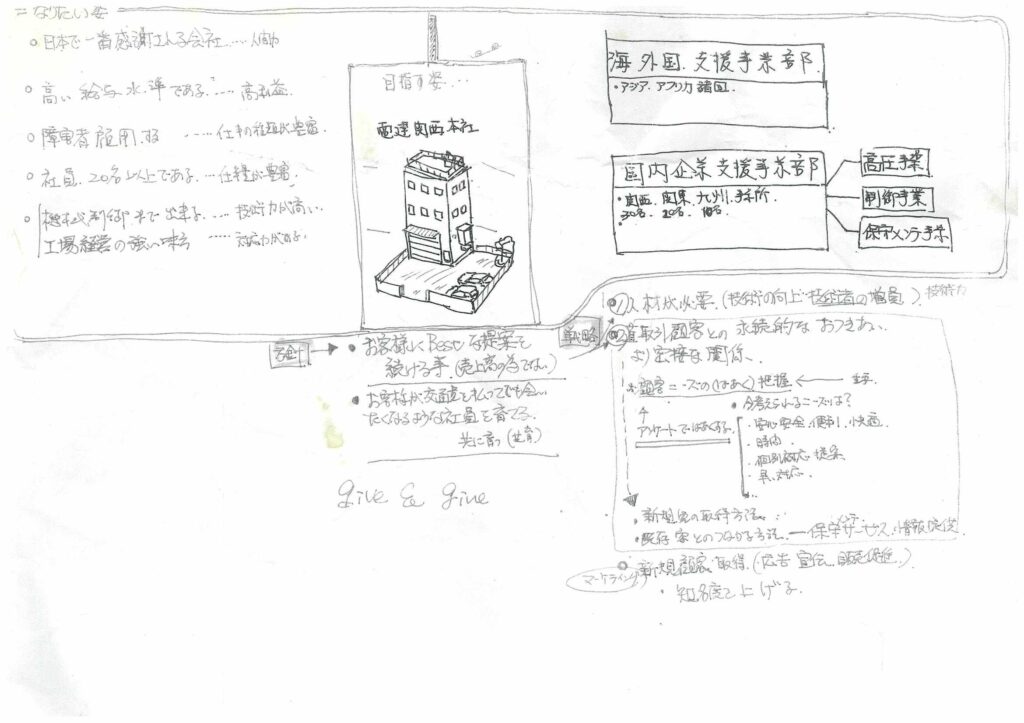 = なりたい姿
○ 日本で一番感謝される会社 …… 人間力
○ 高い給与水準である …… 高利益
○ 障害者雇用する …… 仕事の種類が豊富
○ 社員、20名以上である …仕種が豊富
○ 機械制御まで出来る …… 技術力が高い
工場経営の強い味方 …… 対応力がある
目指す姿…
電達関西本社
海外国支援事業部
・アジア、アフリカ諸国
国内企業支援事業部
・関西、関東、九州
30名 20名 10名
高圧事業
制御事業
保守メンテ事業
方針
・お客様にBestな提案を
続ける事(売上高の為でない)
・お客様が交通費を払ってでも会い
たくなるような社員を育てる
共に育つ(共育)
give & give
戦略
① 人材が必要(技術の向上 技術者の増員) 技術力
② 直取引顧客との永続的なおつきあい
より密接な関係、
お顧客ニーズの(はあく)把握 ← 重要
アンケートではあくする
・今考えられるニーズは?
・安心 安全 便利 快適
・時間
・個別対応 提案
・早い対応
・既存客とのつながる方法 ― 保守サービス 情報
・新規顧客取得(広告 宣伝 販売促進)
マーケティング
・知名度を上げる